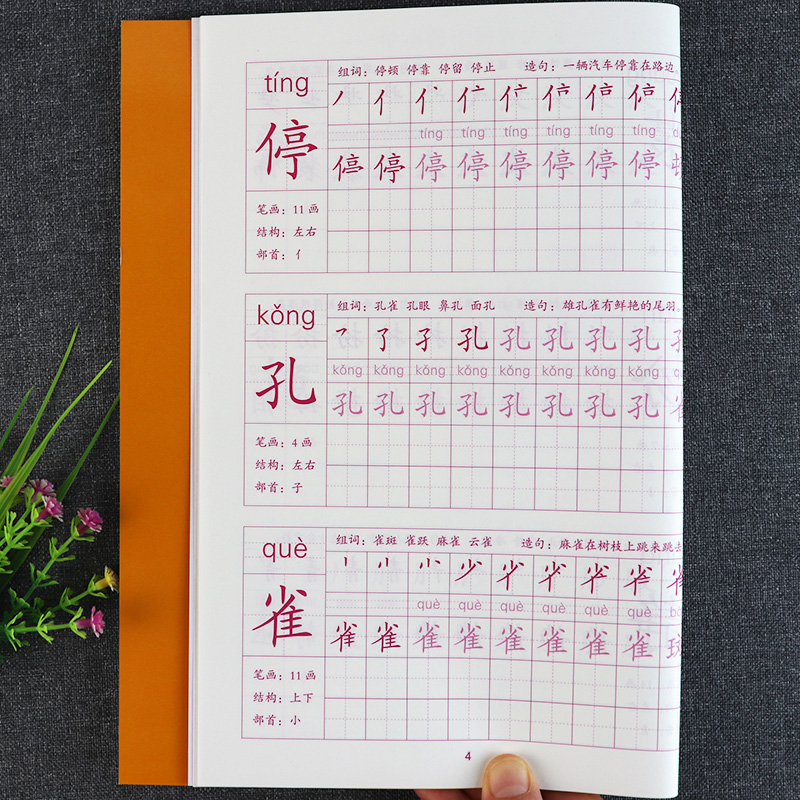 tíng
组词：停顿 停靠 停留 停止 造句：一辆汽车停靠在路边
停
tíng tíng tíng tíng tíng tíng
停 停 停 停 停 停 停
笔画：11 画
结构：左右
部首：亻
kǒng
组词：孔雀 孔眼 鼻孔 面孔 造句：雄孔雀有鲜艳的尾羽。
孔
了 孑 孔 孔 孔 孔 孔
kǒng kǒng kǒng kǒng kǒng kǒng kǒng kǒng
孔 孔 孔 孔 孔 孔 孔 孔
笔画：4 画
结构：左右
部首：子
què
组词：雀斑 雀跃 麻雀 云雀 造句：麻雀在树枝上跳来跳去
雀
què què què què què què
雀 雀 雀 雀 雀 雀 雀
笔画：11 画
结构：上下
部首：小
4